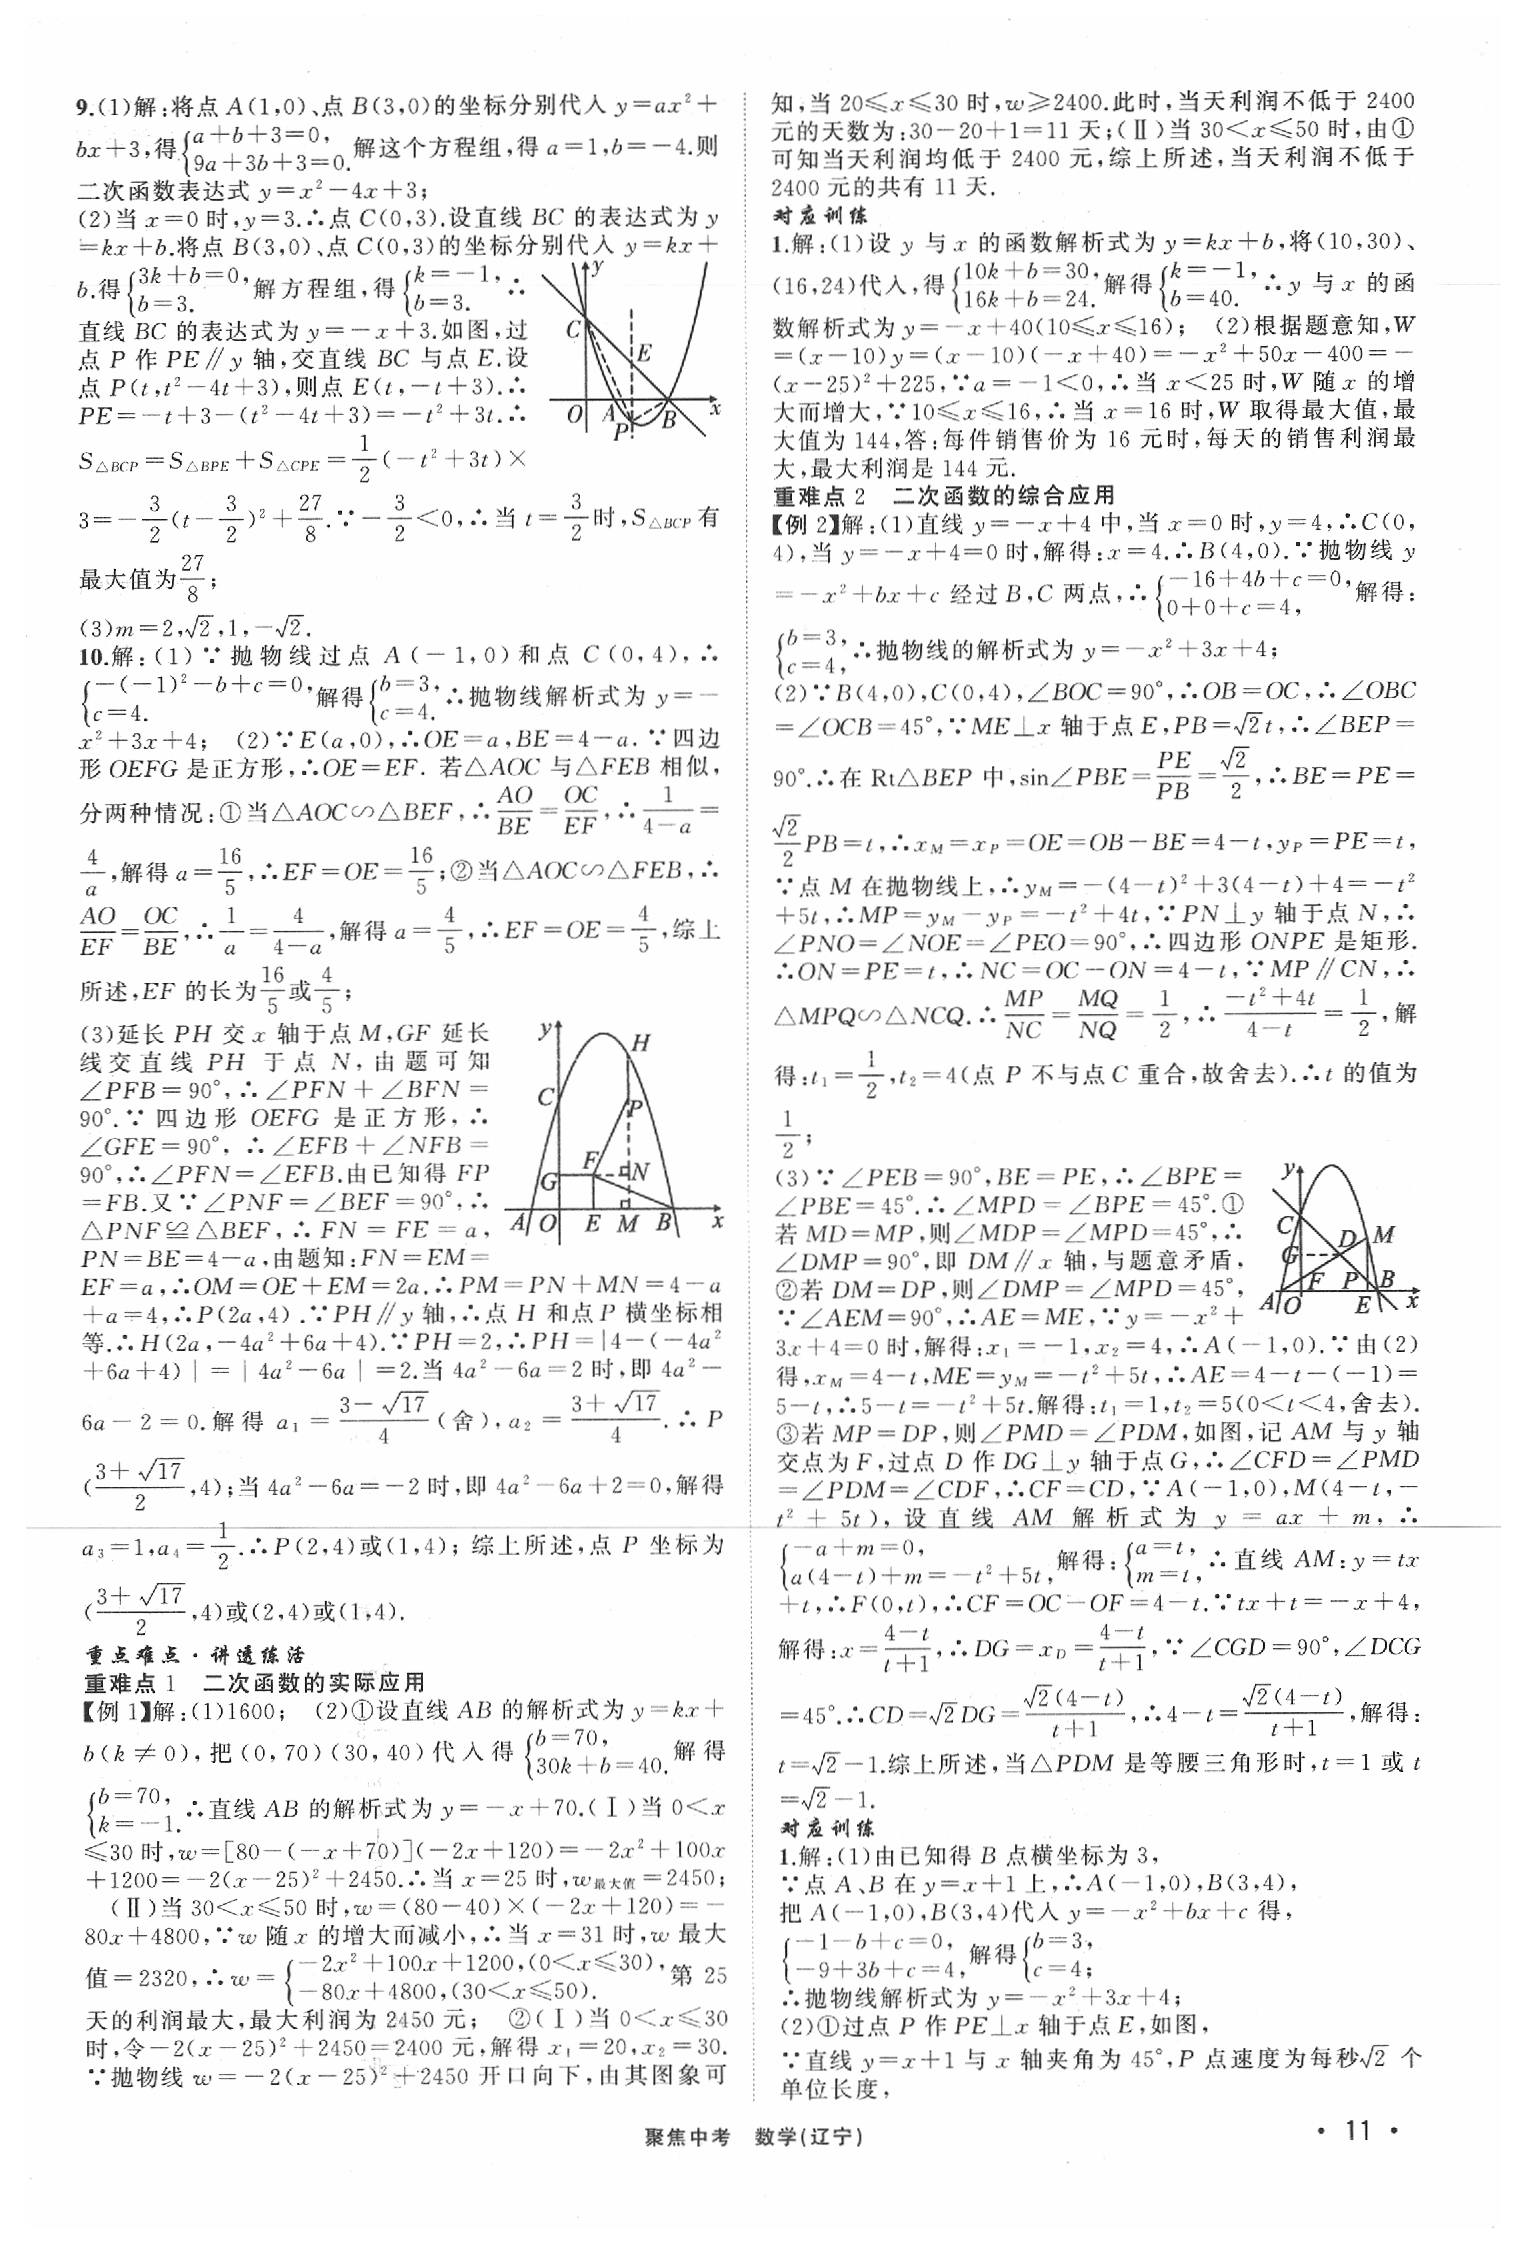 9.(1)解:将点 A(1,0)、点 B(3,0)的坐标分别代入 y=ax²+
bx+3,得{a+b+3=0, 9a+3b+3=0. 解这个方程组,得 a=1,b=-4.则
二次函数表达式 y=x²-4x+3;
(2)当 x=0 时,y=3.∴点 C(0,3).设直线 BC 的表达式为 y
=kx+b.将点 B(3,0)、点 C(0,3)的坐标分别代入 y=kx+
b.得{3k+b=0, b=3. 解方程组,得{k=-1, b=3. ∴
直线 BC 的表达式为 y=-x+3.如图,过
点 P 作 PE∥y 轴,交直线 BC 与点 E.设
点 P(t,t²-4t+3),则点 E(t,-t+3).∴
PE=-t+3-(t²-4t+3)=-t²+3t.∴
S△BCP=S△BPE+S△CPE=1/2(-t²+3t)×
3=-3/2(t-3/2)²+27/8.∵-3/2<0,∴当 t=3/2时,S△BCP有
最大值为27/8;
(3)m=2,√2,1,-√2.
y
C
E
O
A
P
B
x
10.解:(1)∵抛物线过点 A(-1,0)和点 C(0,4),∴
{-(-1)²-b+c=0, c=4. 解得{b=3, c=4. ∴抛物线解析式为 y=-
x²+3x+4; (2)∵E(a,0),∴OE=a,BE=4-a.∵四边
形 OEFG 是正方形,∴OE=EF. 若△AOC 与△FEB 相似,
分两种情况:①当△AOC∽△BEF,∴AO/BE=OC/EF,∴1/(4-a)=
4/a,解得 a=16/5,∴EF=OE=16/5;②当△AOC∽△FEB,∴
AO/EF=OC/BE,∴1/a=4/(4-a),解得 a=4/5,∴EF=OE=4/5,综上
所述,EF 的长为16/5或4/5;
(3)延长 PH 交 x 轴于点 M,GF 延长
线交直线 PH 于点 N,由题可知
∠PFB=90°,∴∠PFN+∠BFN=
90°.∵四边形 OEFG 是正方形,∴
∠GFE=90°,∴∠EFB+∠NFB=
90°,∴∠PFN=∠EFB.由已知得 FP
=FB.又∵∠PNF=∠BEF=90°,∴
△PNF≌△BEF,∴FN=FE=a,
PN=BE=4-a,由题知:FN=EM=
EF=a,∴OM=OE+EM=2a.∴PM=PN+MN=4-a
+a=4,∴P(2a,4).∵PH∥y 轴,∴点 H 和点 P 横坐标相
等.∴H(2a,-4a²+6a+4).∵PH=2,∴PH=|4-(-4a²
+6a+4)|=|4a²-6a|=2.当 4a²-6a=2 时,即 4a²-
6a-2=0.解得 a₁=(3-√17)/4(舍),a₂=(3+√17)/4.∴P
((3+√17)/2,4);当 4a²-6a=-2 时,即 4a²-6a+2=0,解得
a₃=1,a₄=1/2.∴P(2,4)或(1,4);综上所述,点 P 坐标为
((3+√17)/2,4)或(2,4)或(1,4).
y
H
C
P
F
G
N
A
O
E
M
B
x
重点难点·讲透练活
重难点 1 二次函数的实际应用
【例 1】解:(1)1600; (2)①设直线 AB 的解析式为 y=kx+
b(k≠0),把(0,70)(30,40)代入得{b=70, 30k+b=40. 解得
{b=70, k=-1. ∴直线 AB 的解析式为 y=-x+70.(Ⅰ)当 0<x
≤30 时,w=[80-(-x+70)](-2x+120)=-2x²+100x
+1200=-2(x-25)²+2450.∴当 x=25 时,w最大值=2450;
(Ⅱ)当 30<x≤50 时,w=(80-40)×(-2x+120)=-
80x+4800,∵w 随 x 的增大而减小,∴当 x=31 时,w 最大
值=2320,∴w={-2x²+100x+1200,(0<x≤30), -80x+4800,(30<x≤50). 第 25
天的利润最大,最大利润为 2450 元; ②(Ⅰ)当 0<x≤30
时,令-2(x-25)²+2450=2400 元,解得 x₁=20,x₂=30.
∵抛物线 w=-2(x-25)²+2450 开口向下,由其图象可
知,当 20≤x≤30 时,w≥2400.此时,当天利润不低于 2400
元的天数为:30-20+1=11 天;(Ⅱ)当 30<x≤50 时,由①
可知当天利润均低于 2400 元,综上所述,当天利润不低于
2400 元的共有 11 天.
对应训练
1.解:(1)设 y 与 x 的函数解析式为 y=kx+b,将(10,30)、
(16,24)代入,得{10k+b=30, 16k+b=24. 解得{k=-1, b=40. ∴y 与 x 的函
数解析式为 y=-x+40(10≤x≤16); (2)根据题意知,W
=(x-10)y=(x-10)(-x+40)=-x²+50x-400=-
(x-25)²+225,∵a=-1<0,∴当 x<25 时,W 随 x 的增
大而增大,∵10≤x≤16,∴当 x=16 时,W 取得最大值,最
大值为 144,答:每件销售价为 16 元时,每天的销售利润最
大,最大利润是 144 元.
重难点 2 二次函数的综合应用
【例 2】解:(1)直线 y=-x+4 中,当 x=0 时,y=4,∴C(0,
4),当 y=-x+4=0 时,解得:x=4.∴B(4,0).∵抛物线 y
=-x²+bx+c 经过 B,C 两点,∴{-16+4b+c=0, 0+0+c=4, 解得:
{b=3, c=4, ∴抛物线的解析式为 y=-x²+3x+4;
(2)∵B(4,0),C(0,4),∠BOC=90°,∴OB=OC,∴∠OBC
=∠OCB=45°,∵ME⊥x 轴于点 E,PB=√2t,∴∠BEP=
90°.∴在 Rt△BEP 中,sin∠PBE=PE/PB=√2/2,∴BE=PE=
√2/2PB=t,∴xM=xP=OE=OB-BE=4-t,yP=PE=t,
∵点 M 在抛物线上,∴yM=-(4-t)²+3(4-t)+4=-t²
+5t,∴MP=yM-yP=-t²+4t,∵PN⊥y 轴于点 N,∴
∠PNO=∠NOE=∠PEO=90°,∴四边形 ONPE 是矩形.
∴ON=PE=t,∴NC=OC-ON=4-t,∵MP∥CN,∴
△MPQ∽△NCQ.∴MP/NC=MQ/NQ=1/2,∴(-t²+4t)/(4-t)=1/2,解
得:t₁=1/2,t₂=4(点 P 不与点 C 重合,故舍去).∴t 的值为
1/2;
(3)∵∠PEB=90°,BE=PE,∴∠BPE=
∠PBE=45°.∴∠MPD=∠BPE=45°.①
若 MD=MP,则∠MDP=∠MPD=45°,∴
∠DMP=90°,即 DM∥x 轴,与题意矛盾,
②若 DM=DP,则∠DMP=∠MPD=45°,
∵∠AEM=90°,∴AE=ME,∵y=-x²+
3x+4=0 时,解得:x₁=-1,x₂=4,∴A(-1,0).∵由(2)
得,xM=4-t,ME=yM=-t²+5t,∴AE=4-t-(-1)=
5-t,∴5-t=-t²+5t.解得:t₁=1,t₂=5(0<t<4,舍去).
③若 MP=DP,则∠PMD=∠PDM,如图,记 AM 与 y 轴
交点为 F,过点 D 作 DG⊥y 轴于点 G,∴∠CFD=∠PMD
=∠PDM=∠CDF,∴CF=CD,∵A(-1,0),M(4-t,-
t²+5t),设直线 AM 解析式为 y=ax+m,∴
{-a+m=0, a(4-t)+m=-t²+5t, 解得:{a=t, m=t, ∴直线 AM:y=tx
+t,∴F(0,t),∴CF=OC-OF=4-t.∵tx+t=-x+4,
解得:x=(4-t)/(t+1),∴DG=xD=(4-t)/(t+1),∵∠CGD=90°,∠DCG
=45°.∴CD=√2DG=√2(4-t)/(t+1),∴4-t=√2(4-t)/(t+1),解得:
t=√2-1.综上所述,当△PDM 是等腰三角形时,t=1 或 t
=√2-1.
y
C
D
M
G
F
P
B
A
O
E
x
对应训练
1.解:(1)由已知得 B 点横坐标为 3,
∵点 A、B 在 y=x+1 上,∴A(-1,0),B(3,4),
把 A(-1,0),B(3,4)代入 y=-x²+bx+c 得,
{-1-b+c=0, -9+3b+c=4, 解得{b=3, c=4;
∴抛物线解析式为 y=-x²+3x+4;
(2)①过点 P 作 PE⊥x 轴于点 E,如图,
∵直线 y=x+1 与 x 轴夹角为 45°,P 点速度为每秒√2 个
单位长度,
聚焦中考 数学(辽宁)
· 11 ·